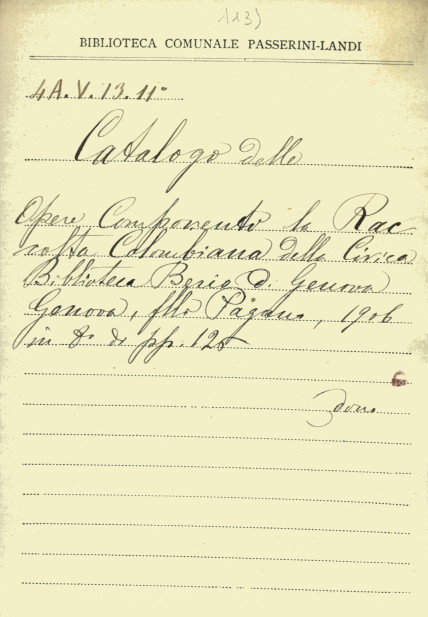 113)
BIBLIOTECA COMUNALE PASSERINI-LANDI
4A. V. 13. 11°
Catalogo delle
Opere Componenti la Rac
colta Colombiana della Civica
Biblioteca Berio di Genova
Genova, flli Pagano, 1906
in 8° di pp. 125
dono